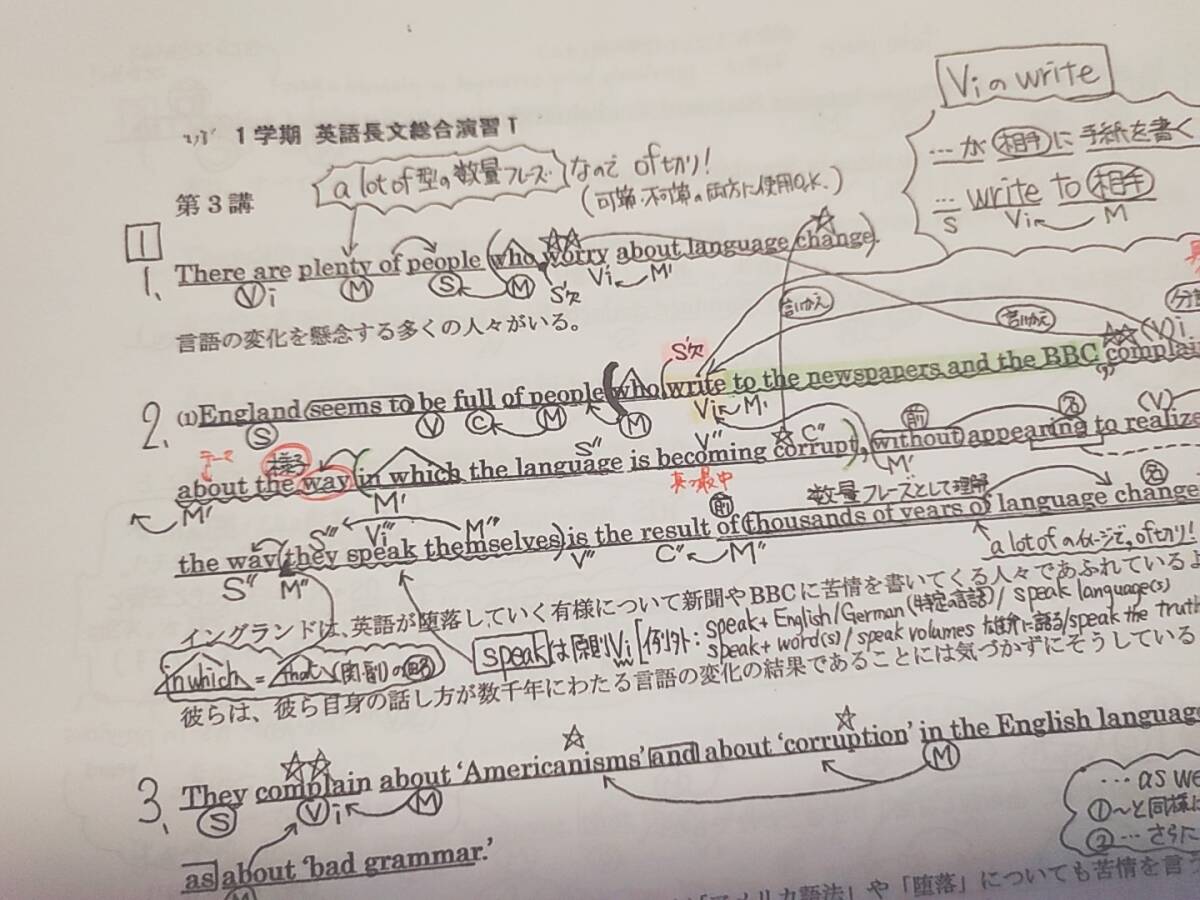 Viのwrite
1学期 英語長文総合演習T
…が相手に手紙を書く
a lot of型の数量フレーズ なので of切り!
… write to 相手
S Vi M
第3講
(可算・不可算の両方に使用O.K.)
1
1. There are plenty of people (who worry about language change).
Vi M S M S'欠 Vi M'
言いかえ
言いかえ
言語の変化を懸念する多くの人々がいる。
S'欠
(V)i
2. (1)England seems to be full of people (who write to the newspapers and the BBC complain
S V C M M Vi M'
前 名 (V)
テーマ
様子
about the way (in which the language is becoming corrupt), without appearing to realize
M' M' S" V" C" M'
真っ最中
前
数量フレーズとして理解
名
the way (they speak themselves) is the result of thousands of years of language change
S" M" S''' Vi''' M''' V" C" M"
a lot ofのイメージで、of切り!
イングランドは、英語が堕落していく有様について新聞やBBCに苦情を書いてくる人々であふれているよ
speakは原則Vi [例外: speak+English/German(特定の言語)/speak language(s)
speak+word(s)/speak volumes 雄弁に語る/speak the truth
in which = that(関・副)の略
彼らは、彼ら自身の話し方が数千年にわたる言語の変化の結果であることには気づかずにそうしている
3. They complain about 'Americanisms' and about 'corruption' in the English language
S Vi M M
… as we
①～と同様に
②… さらに
as about 'bad grammar.'
M
「アメリカ語法」や「堕落」についても苦情を言う